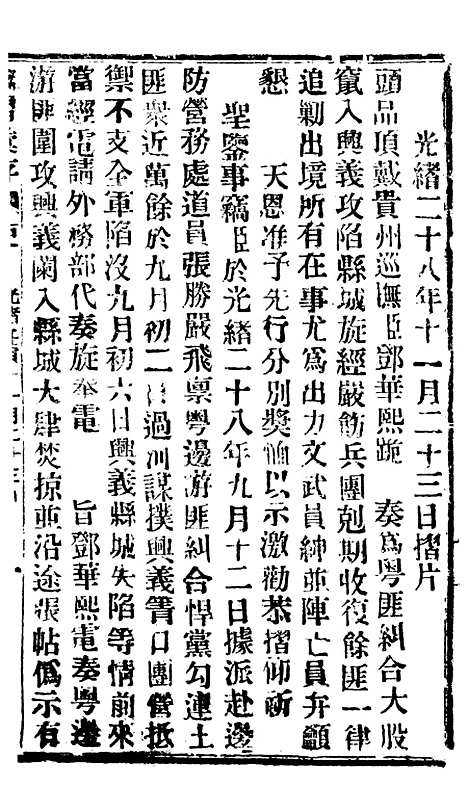 光緒二十八年十一月二十三日摺片
頭品頂戴貴州巡撫臣鄧華熙跪　奏爲粵匪糾合大股
竄入興義攻陷縣城旋經嚴飭兵團剋期收復餘匪一律
追剿出境所有在事尤爲出力文武員紳並陣亡員弁籲
懇　天恩准予先行分別獎卹以示激勸恭摺仰祈
聖鑒事竊臣於光緒二十八年九月十二日據派赴邊
防營務處道員張勝嚴飛稟粵邊游匪糾合悍黨勾連土
匪衆近萬餘於九月初二日過河謀撲興義箐口團營抵
禦不支全軍陷沒九月初六日興義縣城失陷等情前來
當經電請外務部代奏旋奉電　旨鄧華熙電奏粵邊
游匪圍攻興義闌入縣城大肆焚掠並沿途張帖僞示有